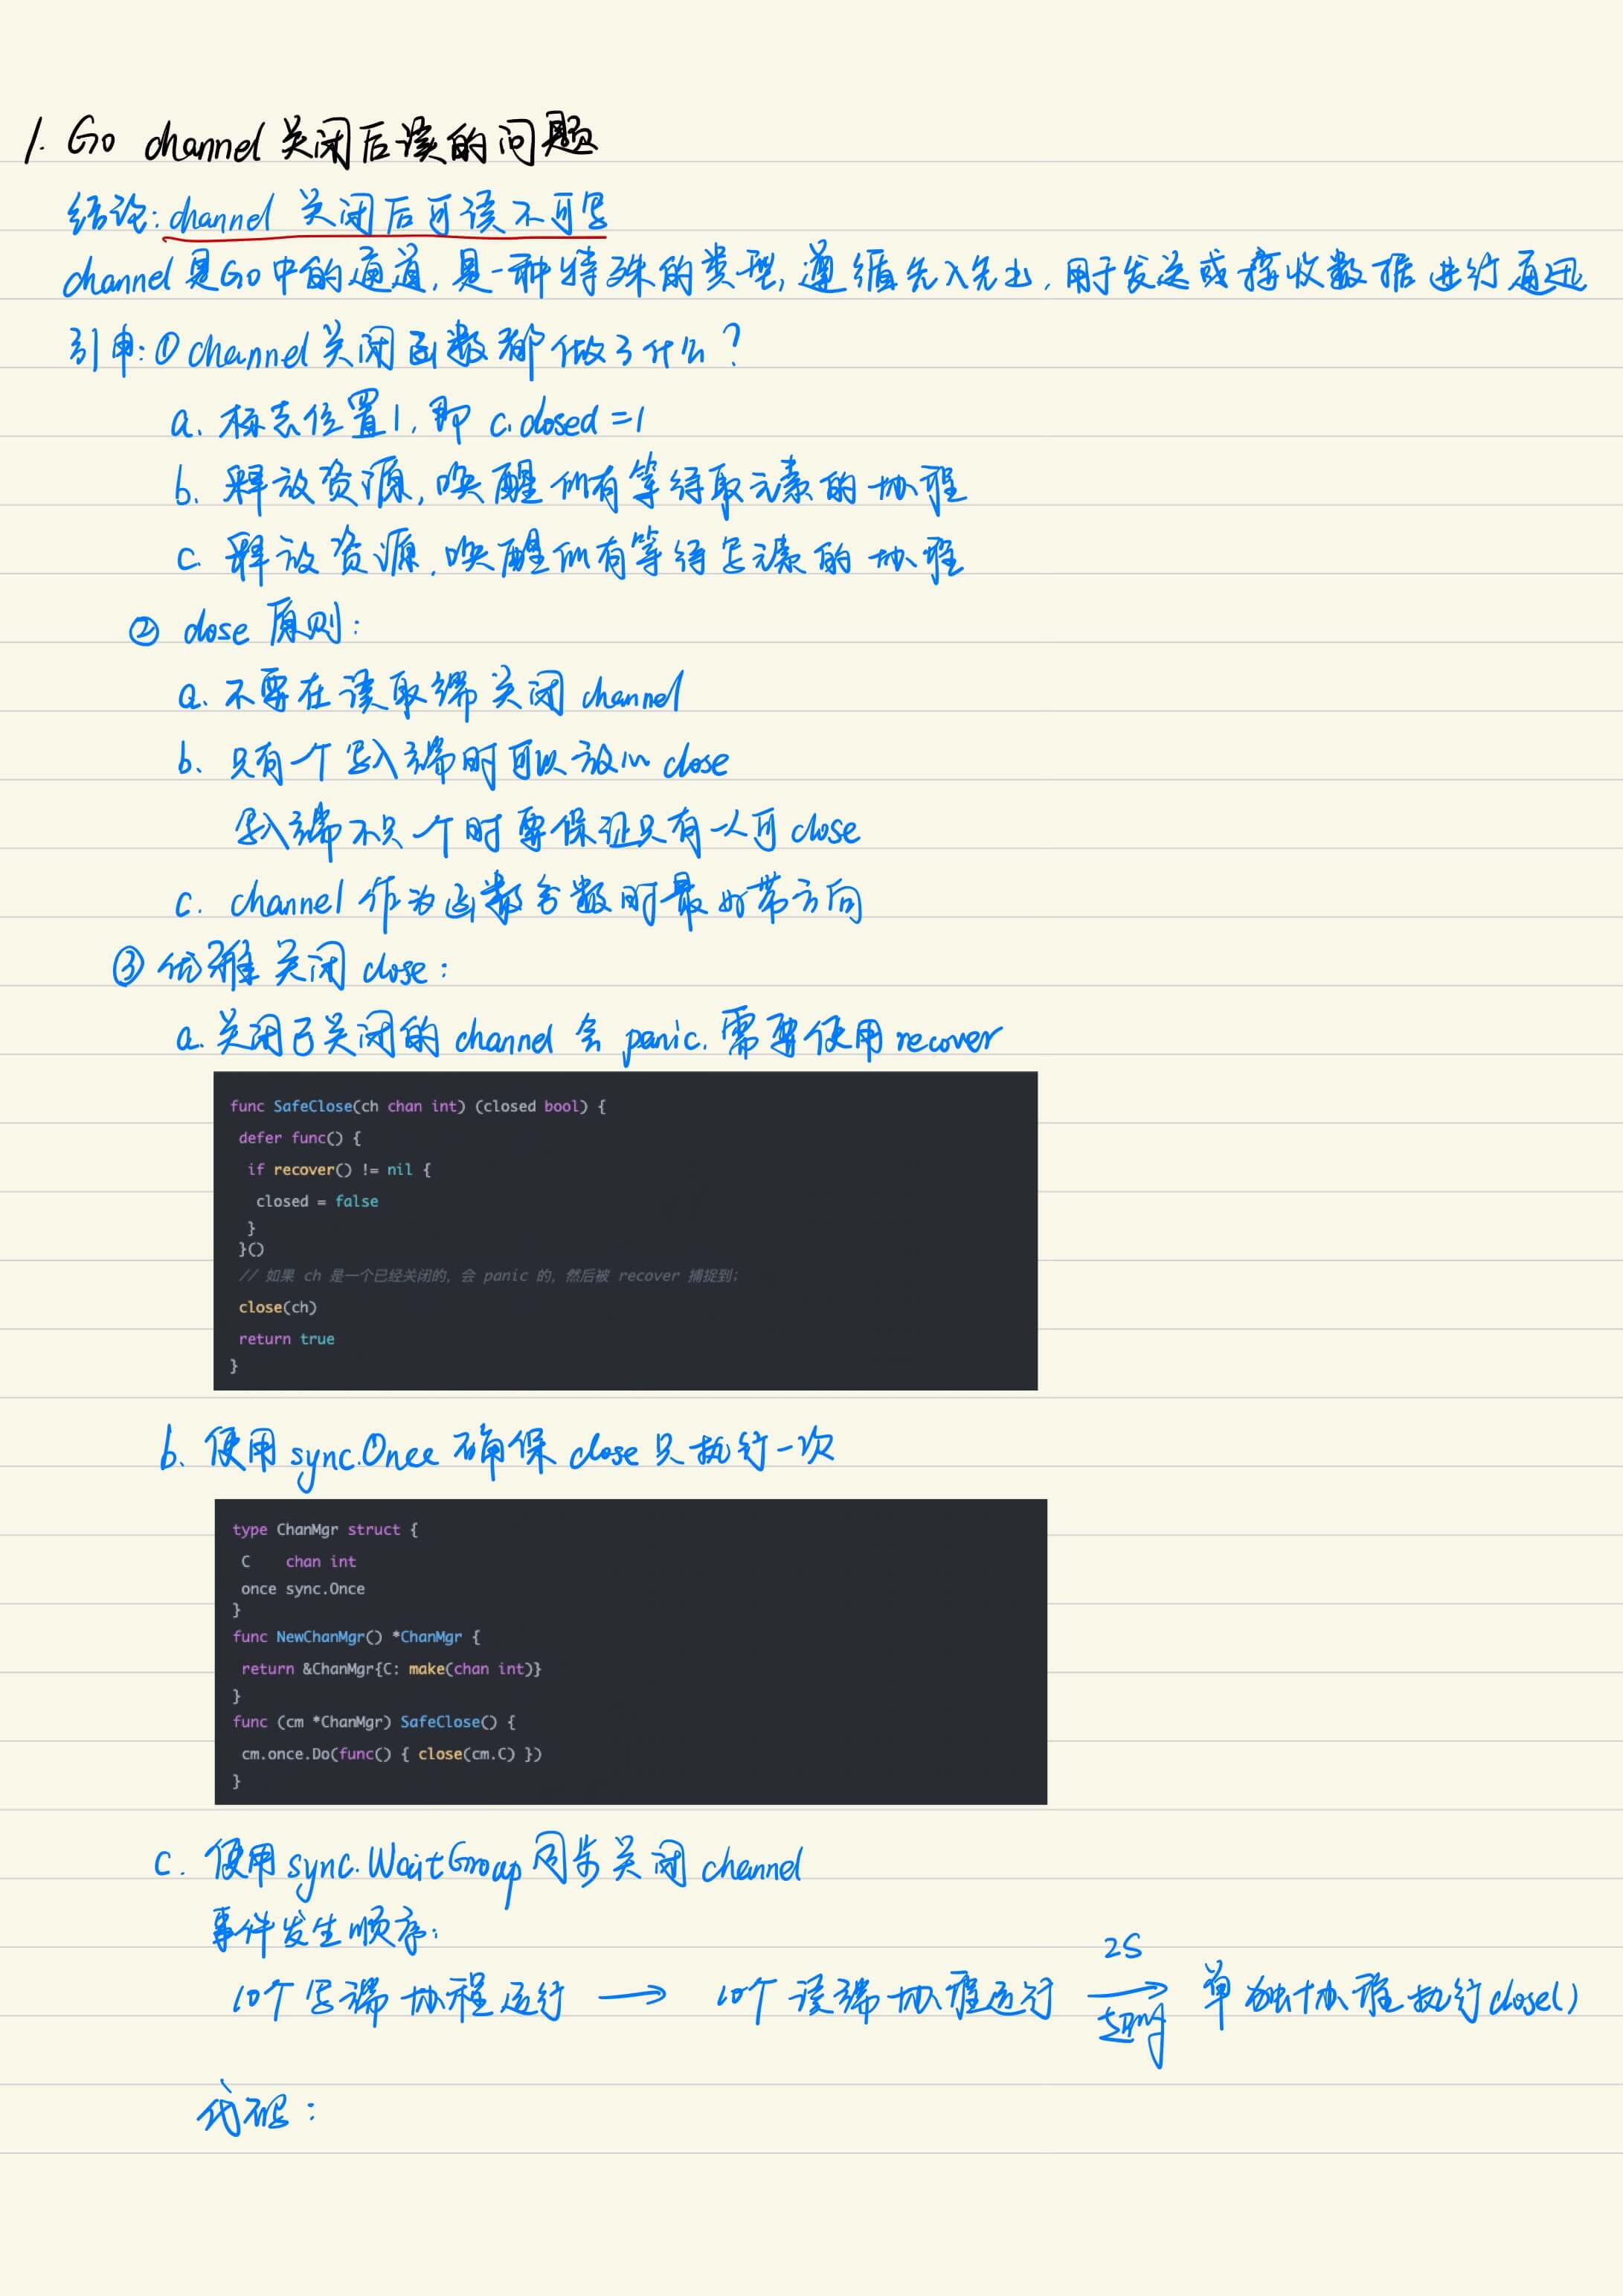 1. Go channel 关闭后读的问题
结论: channel 关闭后可读不可写
channel 是Go中的通道, 是一种特殊的类型, 遵循先入先出, 用于发送或接收数据进行通迅
引申: ① channel 关闭函数都做了什么?
a. 标志位置1, 即 c.closed = 1
b. 释放资源, 唤醒所有等待取元素的协程
c. 释放资源, 唤醒所有等待写元素的协程
② close 原则:
a. 不要在读取端关闭 channel
b. 只有一个写入端时可以放心 close
写入端不只一个时要保证只有一人可 close
c. channel 作为函数参数时最好带方向
③ 优雅关闭 close:
a. 关闭已关闭的 channel 会 panic, 需要使用 recover
func SafeClose(ch chan int) (closed bool) {
defer func() {
if recover() != nil {
closed = false
}
}()
// 如果 ch 是一个已经关闭的, 会 panic 的, 然后被 recover 捕捉到;
close(ch)
return true
}
b. 使用 sync.Once 确保 close 只执行一次
type ChanMgr struct {
C chan int
once sync.Once
}
func NewChanMgr() *ChanMgr {
return &ChanMgr{C: make(chan int)}
}
func (cm *ChanMgr) SafeClose() {
cm.once.Do(func() { close(cm.C) })
}
c. 使用 sync.WaitGroup 同步关闭 channel
事件发生顺序:
10个写端协程运行 → 10个读端协程运行 2S → 超时 单独协程执行close()
代码: